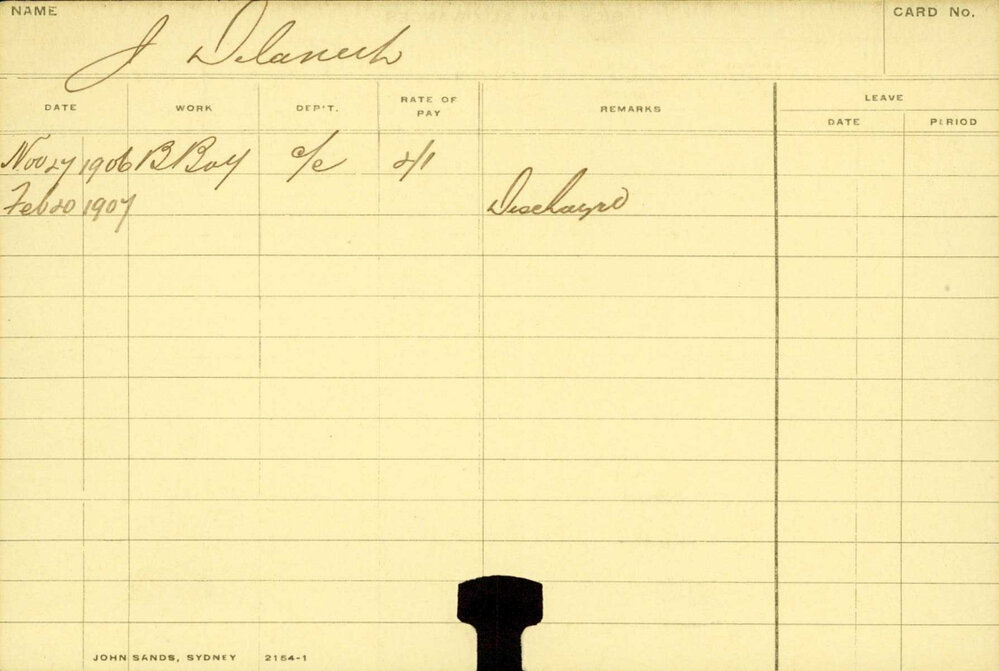 NAME
CARD No.
J Delanech
DATE WORK DEP'T. RATE OF PAY REMARKS LEAVE
DATE PERIOD
Nov 27 1906 B Boy c/c 2/1
Feb 20 1907 Discharged
JOHN SANDS, SYDNEY 2154-1